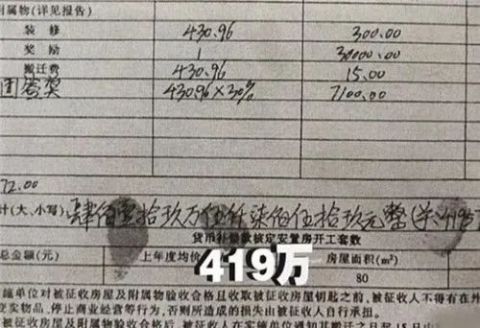 附属物(详见报告)
装修 430.96 300.00
奖励 1 30000.00
搬迁费 430.96 15.00
团签奖 430.96×30% 7100.00
72.00
计(大、小写) 肆佰壹拾玖万伍仟柒佰伍拾玖元整
货币补偿款核定安置房开工套数
总金额(元) 上年度均价 房屋面积(m²)
419万
80
施单位对被征收房屋及附属物验收合格且收取被征收房屋钥匙之前,被征收人不得有在外
变卖物品、停止商业经营等行为,否则所造成的损失由被征收人自行承担。
被征收房屋及附属物验收合格后,被征收人在实施单位通知其搬迁之日起15日